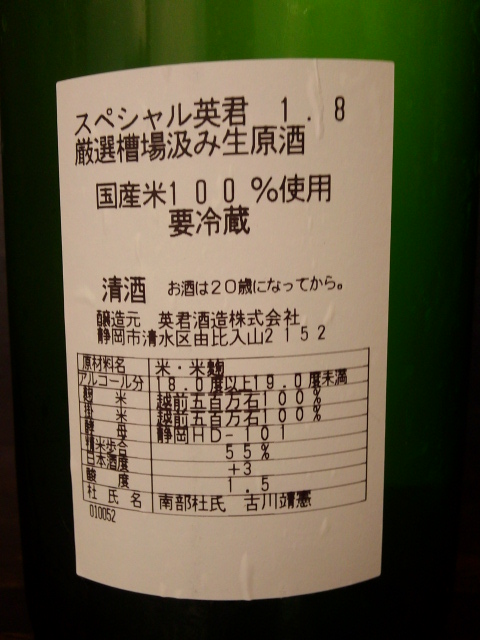 スペシャル英君 1.8
厳選槽場汲み生原酒
国産米100%使用
要冷蔵
清酒 お酒は20歳になってから。
醸造元 英君酒造株式会社
静岡市清水区由比入山2152
原材料名 米・米麹
アルコール分 18.0度以上19.0度未満
麹米 越前五百万石100%
掛米 越前五百万石100%
酵母 静岡HD-101
精米歩合 55%
日本酒度 +3
酸度 1.5
杜氏名 南部杜氏 古川靖憲
010052